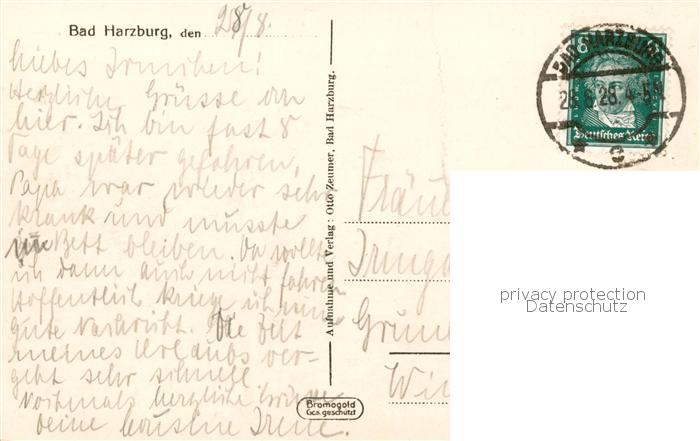 Bad Harzburg, den 28/8.
Liebes Irmchen!
Herzliche Grüsse von
hier. Ich bin fast 8
Tage später gefahren,
Papa war wieder sehr
krank und musste
im Bett bleiben. Da wollte
ich dann auch nicht fahren
Hoffentlich kriege ich nun
gute Nachricht. Die Zeit
meines Urlaubs ver-
geht sehr schnell
Nochmals herzliche Grüsse
Deine Cousine Irene.
Aufnahme und Verlag: Otto Zeumer, Bad Harzburg.
Bromogold
Ges. geschützt
8
BAD HARZBURG
28.8.28. 4-5
Deutsches Reich
Fräu
Irmga
privacy protection
Datenschutz